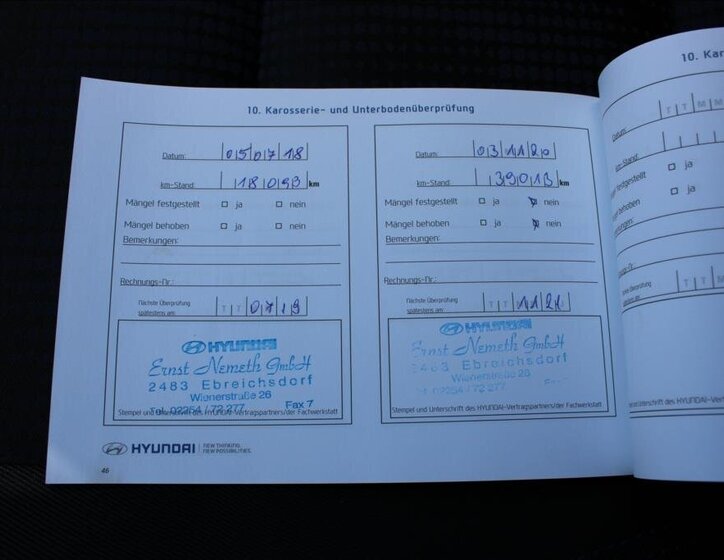 10. Karosserie- und Unterbodenüberprüfung
Datum: 05 07 18
km-Stand: 18093 km
Mängel festgestellt ja nein
Mängel behoben ja nein
Bemerkungen:
Rechnungs-Nr.:
Nächste Überprüfung
spätestens am: T T 07 19
HYUNDAI
Ernst Nemeth GmbH
2483 Ebreichsdorf
Wienerstraße 26
Tel. 02254 / 72 277 Fax 7
Stempel und Unterschrift des HYUNDAI-Vertragspartners/der Fachwerkstatt
Datum: 03 11 20
km-Stand: 39013 km
Mängel festgestellt ja nein
Mängel behoben ja nein
Bemerkungen:
Rechnungs-Nr.:
Nächste Überprüfung
spätestens am: T T 11 21
HYUNDAI
Ernst Nemeth GmbH
Ebreichsdorf
Wienerstraße 26
02254 / 72 277
Stempel und Unterschrift des HYUNDAI-Vertragspartners/der Fachwerkstatt
HYUNDAI NEW THINKING.
NEW POSSIBILITIES.
46
10. Kar
Datum: T T M M
km-Stand:
festgestellt ja
behoben ja
T T M
des HYUNDAI-Vertrags